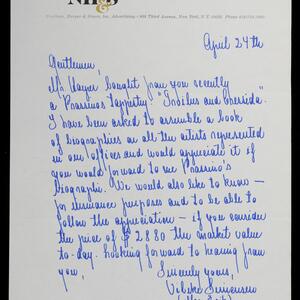 NH&B
Needham, Harper & Steers, Inc. Advertising • 909 Third Avenue, New York, N.Y. 10022
April 24th
Gentlemen
Mr. Mayer bought from you recently
a Prassinos tapestry "Troilus and Cressida".
I have been asked to assemble a book
of biographies on all the artists represented
in our offices and would appreciate it if
you would forward to me Prassino's
biography. We would also like to know –
for insurance purposes and to be able to
follow the appreciation – if you consider
the price of $2880 the market value
to-day. Looking forward to hearing from
you,
Sincerely yours,